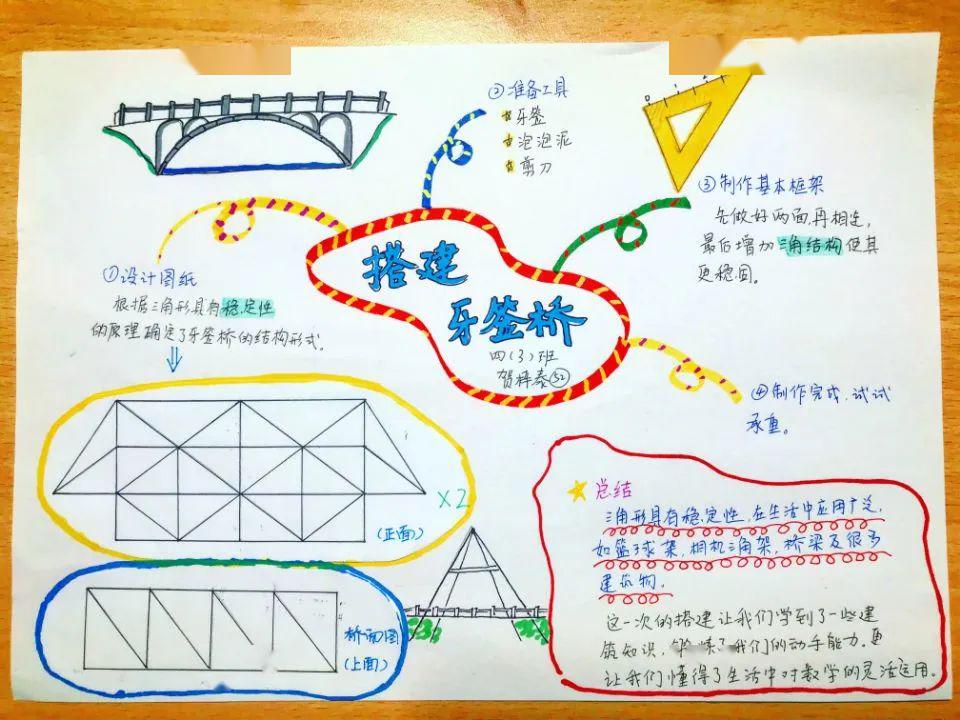 搭建
牙签桥
四(3)班
贺梓泰 52
①设计图纸
根据三角形具有稳定性
的原理确定了牙签桥的结构形式。
②准备工具
牙签
泡泡泥
剪刀
③制作基本框架
先做好两面再相连,
最后增加三角结构使其
更稳固。
④制作完成,试试
承重。
×2
(正面)
桥面图
(上面)
总结
三角形具有稳定性,在生活中应用广泛,
如篮球架,相机三角架,桥梁及很多
建筑物。
这一次的搭建让我们学到了一些建
筑知识,锻炼了我们的动手能力。更
让我们懂得了生活中对数学的灵活运用。